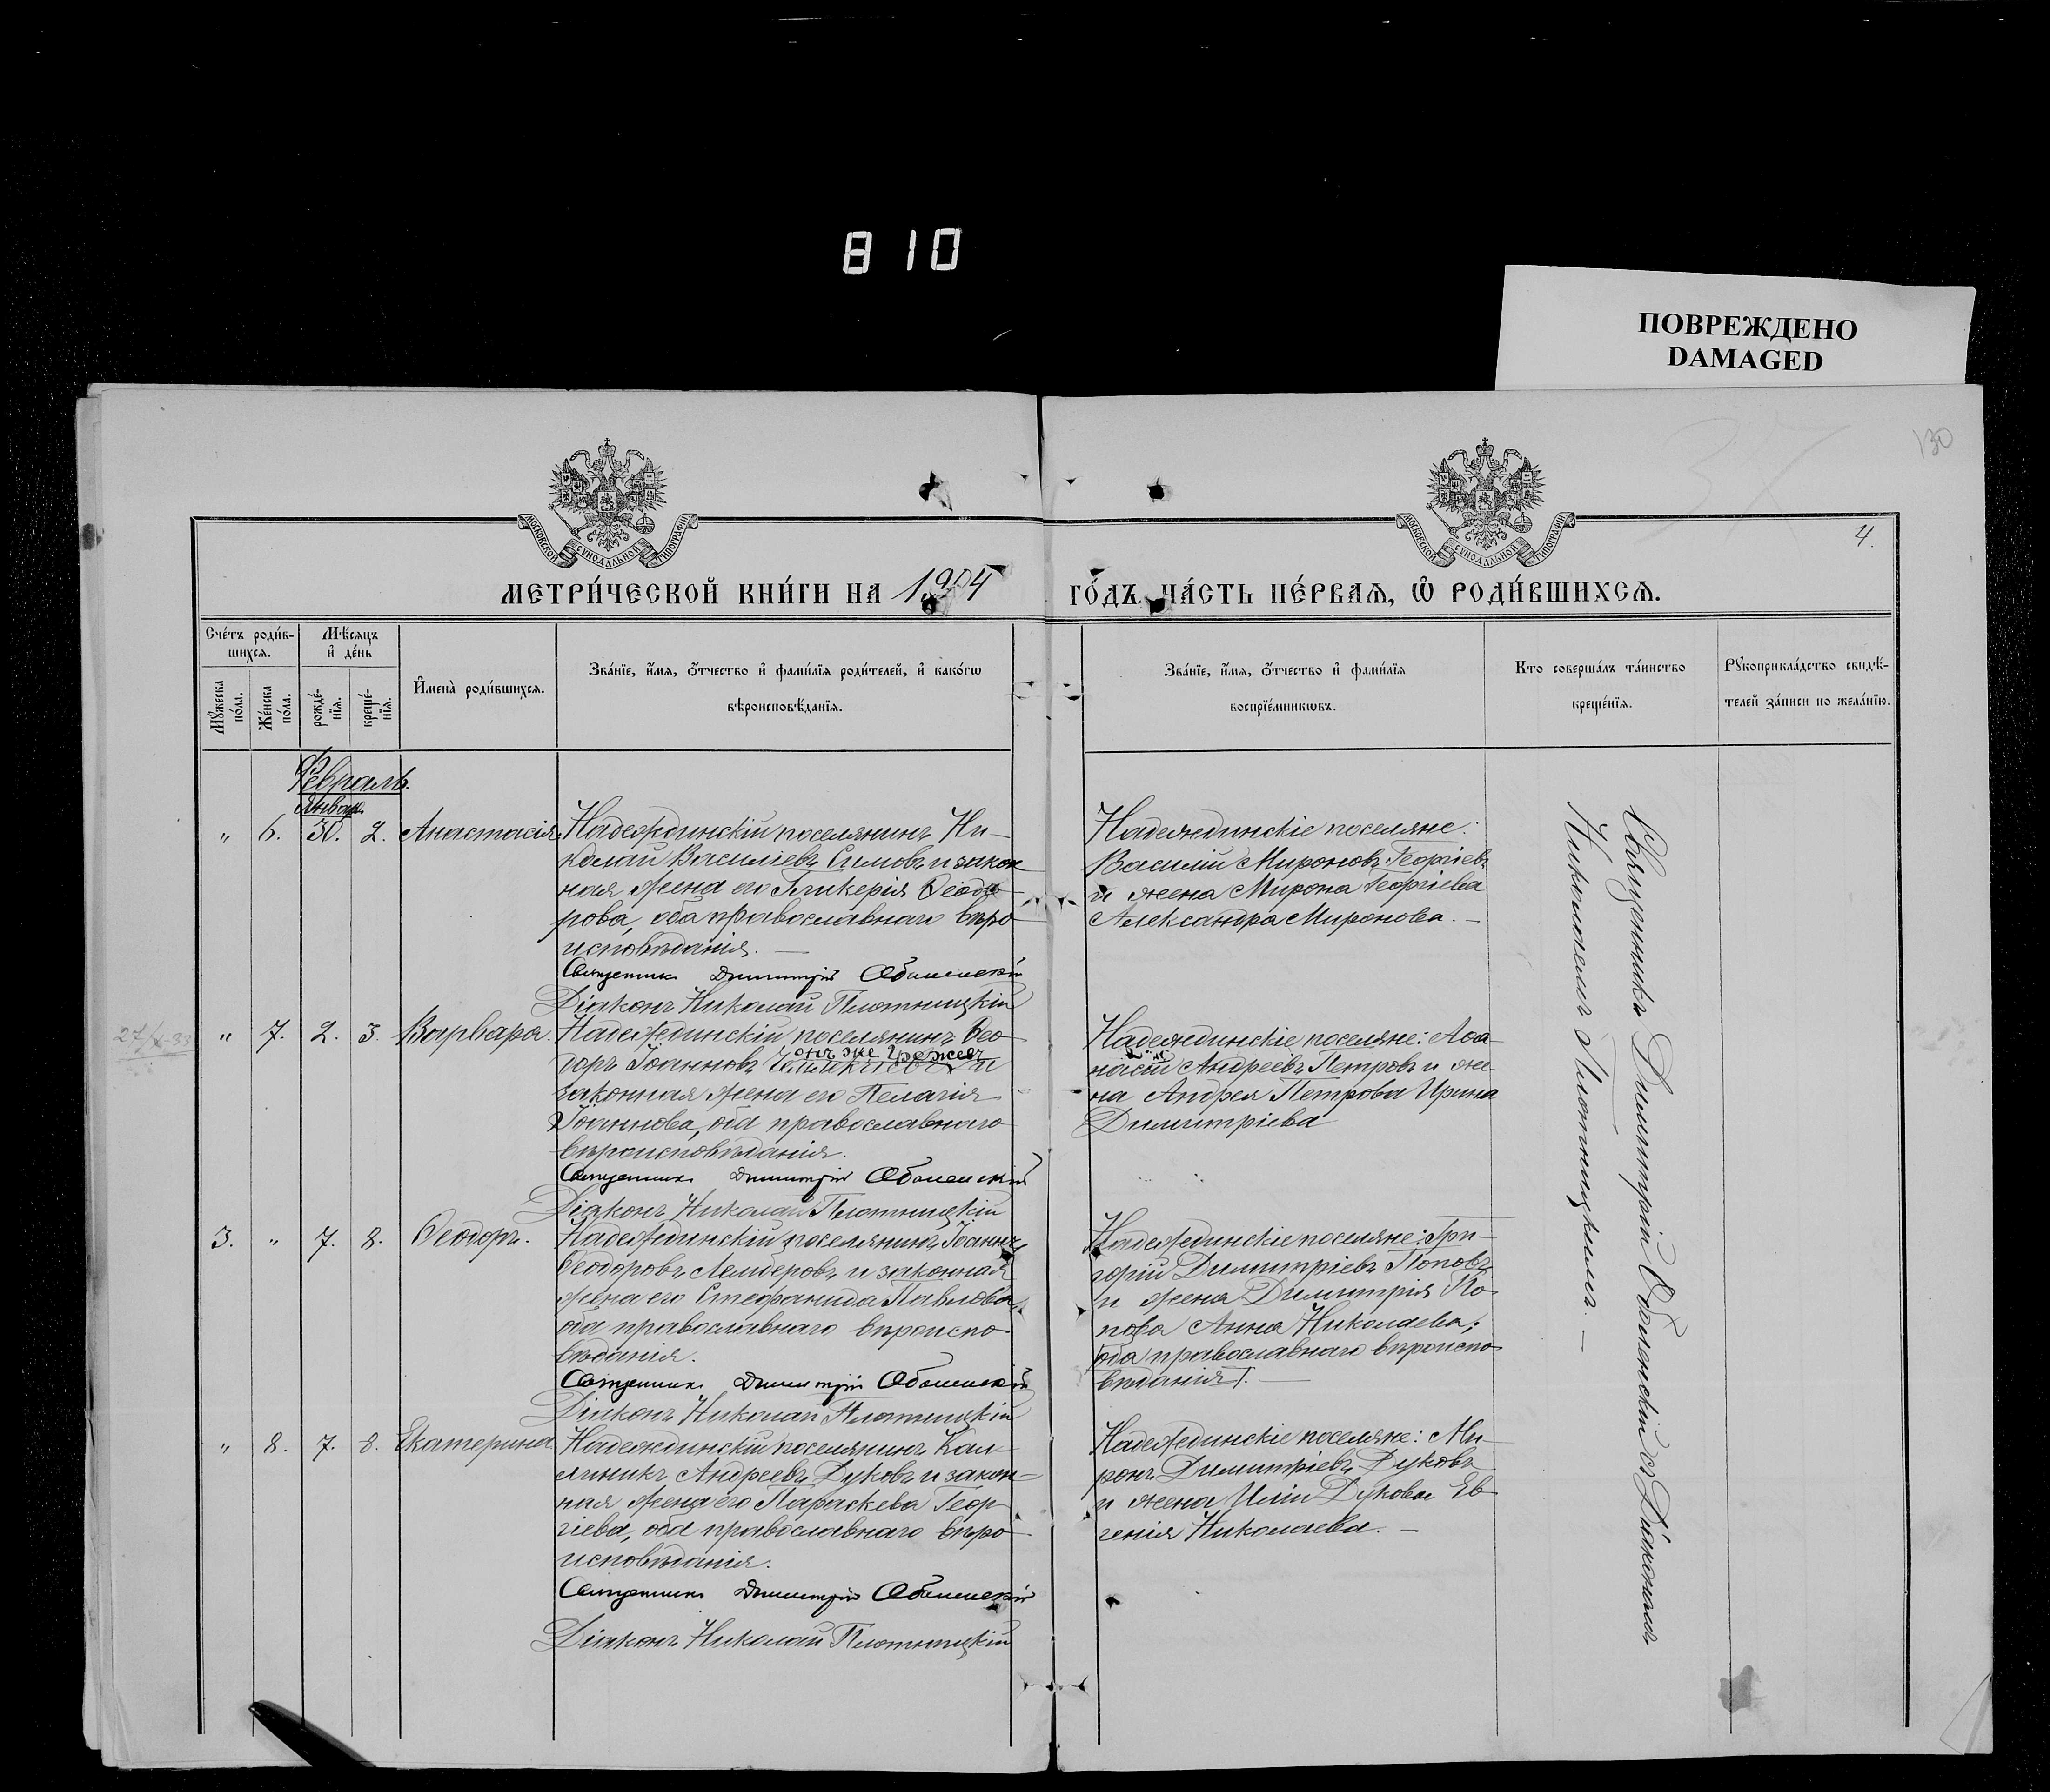 810
ПОВРЕЖДЕНО
DAMAGED
130
37
4.
МОСКОВСКОЙ СѴНОДАЛЬНОЙ ТИПОГРАФІИ
МОСКОВСКОЙ СѴНОДАЛЬНОЙ ТИПОГРАФІИ
МЕТРИ́ЧЕСКОЙ КНИ́ГИ НА 1904 ГО́ДЪ ЧА́СТЬ ПЕ́РВАѦ, Ѡ҆ РОДИ́ВШИХСѦ.
Сче́тъ роди́в-
шихсѧ.
Мꙋ́жеска по́ла.
Же́нска по́ла.
Мѣ́сѧцъ
и҆ де́нь
рожде́-
нїѧ.
креще́-
нїѧ.
И҆мена̀ роди́вшихсѧ.
Зва́нїе, и҆́мѧ, ѻ҆́тчество и҆ фами́лїѧ роди́телей, и҆ како́гѡ
вѣроисповѣ́данїѧ.
Зва́нїе, и҆́мѧ, ѻ҆́тчество и҆ фами́лїѧ
воспрїе́мникѡвъ.
Кто соверша́лъ та́инство
креще́нїѧ.
Рꙋкоприкла́дство свидѣ́-
телей за́писи по жела́нїю.
Февраль.
Январ.
" 6. 30. 2. Анастасія
Надеждинскій поселянинъ Ни-
колай Василіевъ Симовъ и закон
ная жена его Гликерія Ѳеодо-
рова, оба православнаго вѣро
исповѣданія. —
Священникъ Димитрій Оболенскій
Діаконъ Николай Плотницкій
Надеждинскіе поселяне:
Василій Мироновъ Георгіевъ
и жена Мирона Георгіева
Александра Миронова. —
27/X-33
" 7. 2. 3. Варвара
Надеждинскій поселянинъ Ѳео
доръ Іоанновъ
онъ же
и
законная жена его Пелагія
Іоаннова, оба православнаго
вѣроисповѣданія.
Священникъ Димитрій Оболенскій
Діаконъ Николай Плотницкій
Надеждинскіе поселяне: Аѳа-
насій Андреевъ Петровъ и же-
на Андрея Петрова Ирина
Димитріева
3. " 7. 8. Ѳеодоръ.
Надеждинскій поселянинъ Іоаннъ
Ѳеодоровъ Лемперовъ и законная
жена его Стефанида Павлова,
оба православнаго вѣроиспо
вѣданія.
Священникъ Димитрій Оболенскій
Діаконъ Николай Плотницкій
Надеждинскіе поселяне: Гри-
горій Димитріевъ Поповъ
и жена Димитрія По
пова Анна Николаева;
оба православнаго вѣроиспо
вѣданія. —
" 8. 7. 8. Екатерина
Надеждинскій поселянинъ Кал-
линикъ Андреевъ Дуковъ и закон-
ная жена его Параскева Геор-
гіева, оба православнаго вѣро
исповѣданія.
Священникъ Димитрій Оболенскій
Діаконъ Николай Плотницкій
Надеждинскіе поселяне: Ми-
ронъ Димитріевъ Дуковъ
и жена Иліи Дукова Ев
генія Николаева. —
Священникъ Димитрій Оболенскій съ Діакономъ
Николаемъ Плотницкимъ. —